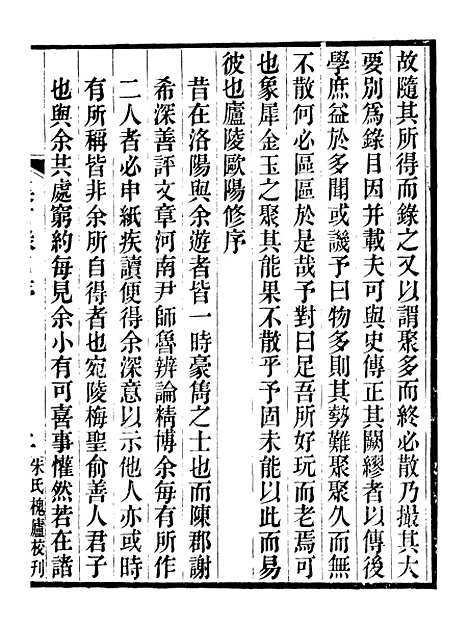 故隨其所得而錄之又以謂聚多而終必散乃撮其大
要別為錄目因并載夫可與史傳正其闕繆者以傳後
學庶益於多聞或譏予曰物多則其勢難聚聚久而無
不散何必區區於是哉予對曰足吾所好玩而老焉可
也象犀金玉之聚其能果不散乎予固未能以此而易
彼也廬陵歐陽修序
昔在洛陽與余遊者皆一時豪雋之士也而陳郡謝
希深善評文章河南尹師魯辨論精博余每有所作
二人者必申紙疾讀便得余深意以示他人亦或時
有所稱皆非余所自得者也宛陵梅聖俞善人君子
也與余共處窮約每見余小有可喜事懽然若在諸
朱氏槐廬校刊